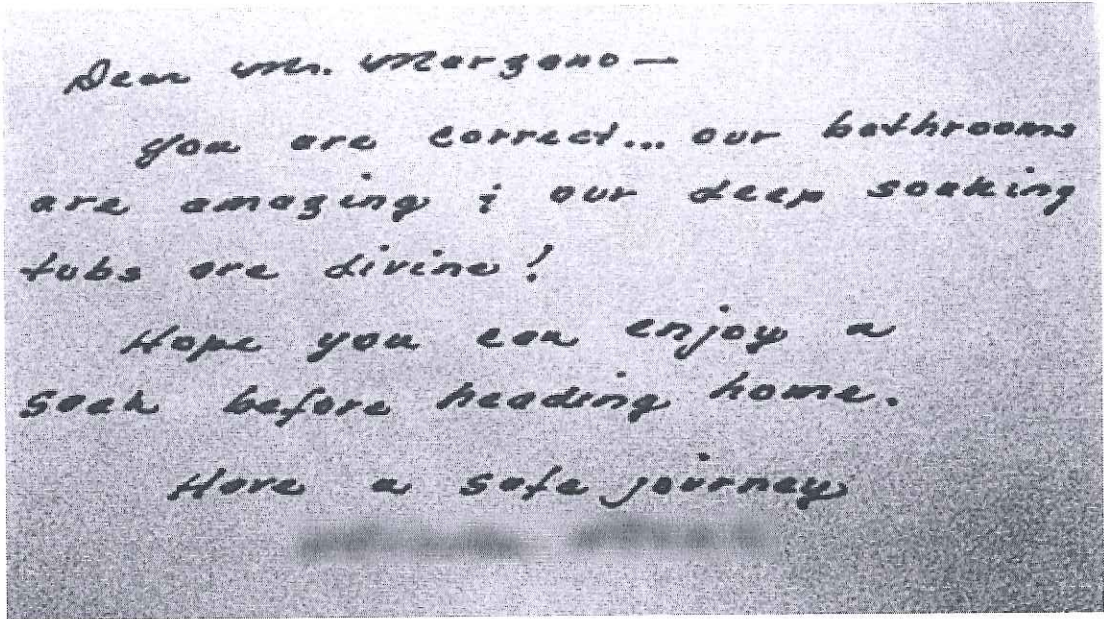 Dear Mr. Margano —
you are correct... our bathrooms
are amazing & our deep soaking
tubs are divine!
Hope you can enjoy a
soak before heading home.
Have a safe journey